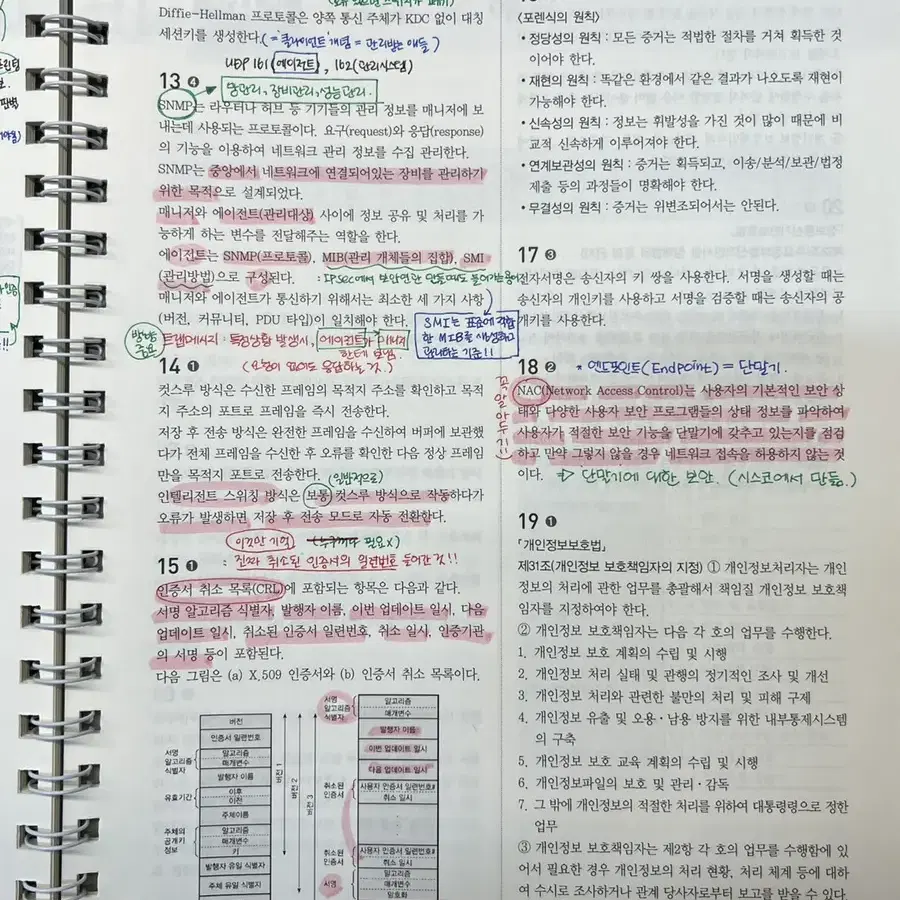 Diffie-Hellman 프로토콜은 양쪽 통신 주체가 KDC 없이 대칭
세션키를 생성한다. (="클라이언트" 개념 = 관리받는 애들)
UDP 161(에이전트), 162(관리시스템)
13 ❹
망관리, 장비관리, 성능관리.
SNMP는 라우터나 허브 등 기기들의 관리 정보를 매니저에 보
내는데 사용되는 프로토콜이다. 요구(request)와 응답(response)
의 기능을 이용하여 네트워크 관리 정보를 수집 관리한다.
SNMP는 중앙에서 네트워크에 연결되어있는 장비를 관리하기
위한 목적으로 설계되었다.
매니저와 에이전트(관리대상) 사이에 정보 공유 및 처리를 가
능하게 하는 변수를 전달해주는 역할을 한다.
에이전트는 SNMP(프로토콜), MIB(관리 개체들의 집합), SMI
(관리방법)으로 구성된다.
매니저와 에이전트가 통신하기 위해서는 최소한 세 가지 사항
(버전, 커뮤니티, PDU 타입)이 일치해야 한다.
SMI는 표준에 적합
한 MIB를 생성하고
관리하는 기준!!
트랩메시지: 특정상황 발생시, 에이전트가 매니저
한테 보냄.
(요청이 없어도 응답하는 것.)
14 ❶
컷스루 방식은 수신한 프레임의 목적지 주소를 확인하고 목적
지 주소의 포트로 프레임을 즉시 전송한다.
저장 후 전송 방식은 완전한 프레임을 수신하여 버퍼에 보관했
다가 전체 프레임을 수신한 후 오류를 확인한 다음 정상 프레임
만을 목적지 포트로 전송한다.
(일반적으로)
인텔리전트 스위칭 방식은 보통 컷스루 방식으로 작동하다가
오류가 발생하면 저장 후 전송 모드로 자동 전환한다.
이것만 기억
필요X
15 ❶
: 진짜 취소된 인증서의 일련번호 들어간 것!!
인증서 취소 목록(CRL)에 포함되는 항목은 다음과 같다.
서명 알고리즘 식별자, 발행자 이름, 이번 업데이트 일시, 다음
업데이트 일시, 취소된 인증서 일련번호, 취소 일시, 인증기관
의 서명 등이 포함된다.
다음 그림은 (a) X.509 인증서와 (b) 인증서 취소 목록이다.
버전
인증서 일련번호
서명
알고리즘
식별자
알고리즘
매개변수
발행자 이름
유효기간
이후
이전
주체이름
주체의
공개키
정보
알고리즘
매개변수
키
발행자 유일 식별자
주체 유일 식별자
버전 1
버전 2
버전 3
서명
알고리즘
식별자
알고리즘
매개변수
발행자 이름
이번 업데이트 일시
다음 업데이트 일시
취소된
인증서
사용자 인증서 일련번호#
취소 일시
취소된
인증서
사용자 인증서 일련번호#
취소 일시
서명
알고리즘
매개변수
암호화
〈포렌식의 원칙〉
• 정당성의 원칙 : 모든 증거는 적법한 절차를 거쳐 획득한 것
이어야 한다.
• 재현의 원칙 : 똑같은 환경에서 같은 결과가 나오도록 재현이
가능해야 한다.
• 신속성의 원칙 : 정보는 휘발성을 가진 것이 많이 때문에 비
교적 신속하게 이루어져야 한다.
• 연계보관성의 원칙 : 증거는 획득되고, 이송/분석/보관/법정
제출 등의 과정들이 명확해야 한다.
• 무결성의 원칙 : 증거는 위변조되어서는 안된다.
17 ❸
전자서명은 송신자의 키 쌍을 사용한다. 서명을 생성할 때는
송신자의 개인키를 사용하고 서명을 검증할 때는 송신자의 공
개키를 사용한다.
18 ❷
* 엔드포인트(EndPoint) = 단말기.
NAC(Network Access Control)는 사용자의 기본적인 보안 상
태와 다양한 사용자 보안 프로그램들의 상태 정보를 파악하여
사용자가 적절한 보안 기능을 단말기에 갖추고 있는지를 점검
하고 만약 그렇지 않을 경우 네트워크 접속을 허용하지 않는 것
이다. ⇒ 단말기에 대한 보안. (시스코에서 만듦.)
19 ❶
「개인정보보호법」
제31조(개인정보 보호책임자의 지정) ① 개인정보처리자는 개인
정보의 처리에 관한 업무를 총괄해서 책임질 개인정보 보호책
임자를 지정하여야 한다.
② 개인정보 보호책임자는 다음 각 호의 업무를 수행한다.
1. 개인정보 보호 계획의 수립 및 시행
2. 개인정보 처리 실태 및 관행의 정기적인 조사 및 개선
3. 개인정보 처리와 관련한 불만의 처리 및 피해 구제
4. 개인정보 유출 및 오용·남용 방지를 위한 내부통제시스템
의 구축
5. 개인정보 보호 교육 계획의 수립 및 시행
6. 개인정보파일의 보호 및 관리·감독
7. 그 밖에 개인정보의 적절한 처리를 위하여 대통령령으로 정한
업무
③ 개인정보 보호책임자는 제2항 각 호의 업무를 수행함에 있
어서 필요한 경우 개인정보의 처리 현황, 처리 체계 등에 대하
여 수시로 조사하거나 관계 당사자로부터 보고를 받을 수 있다.